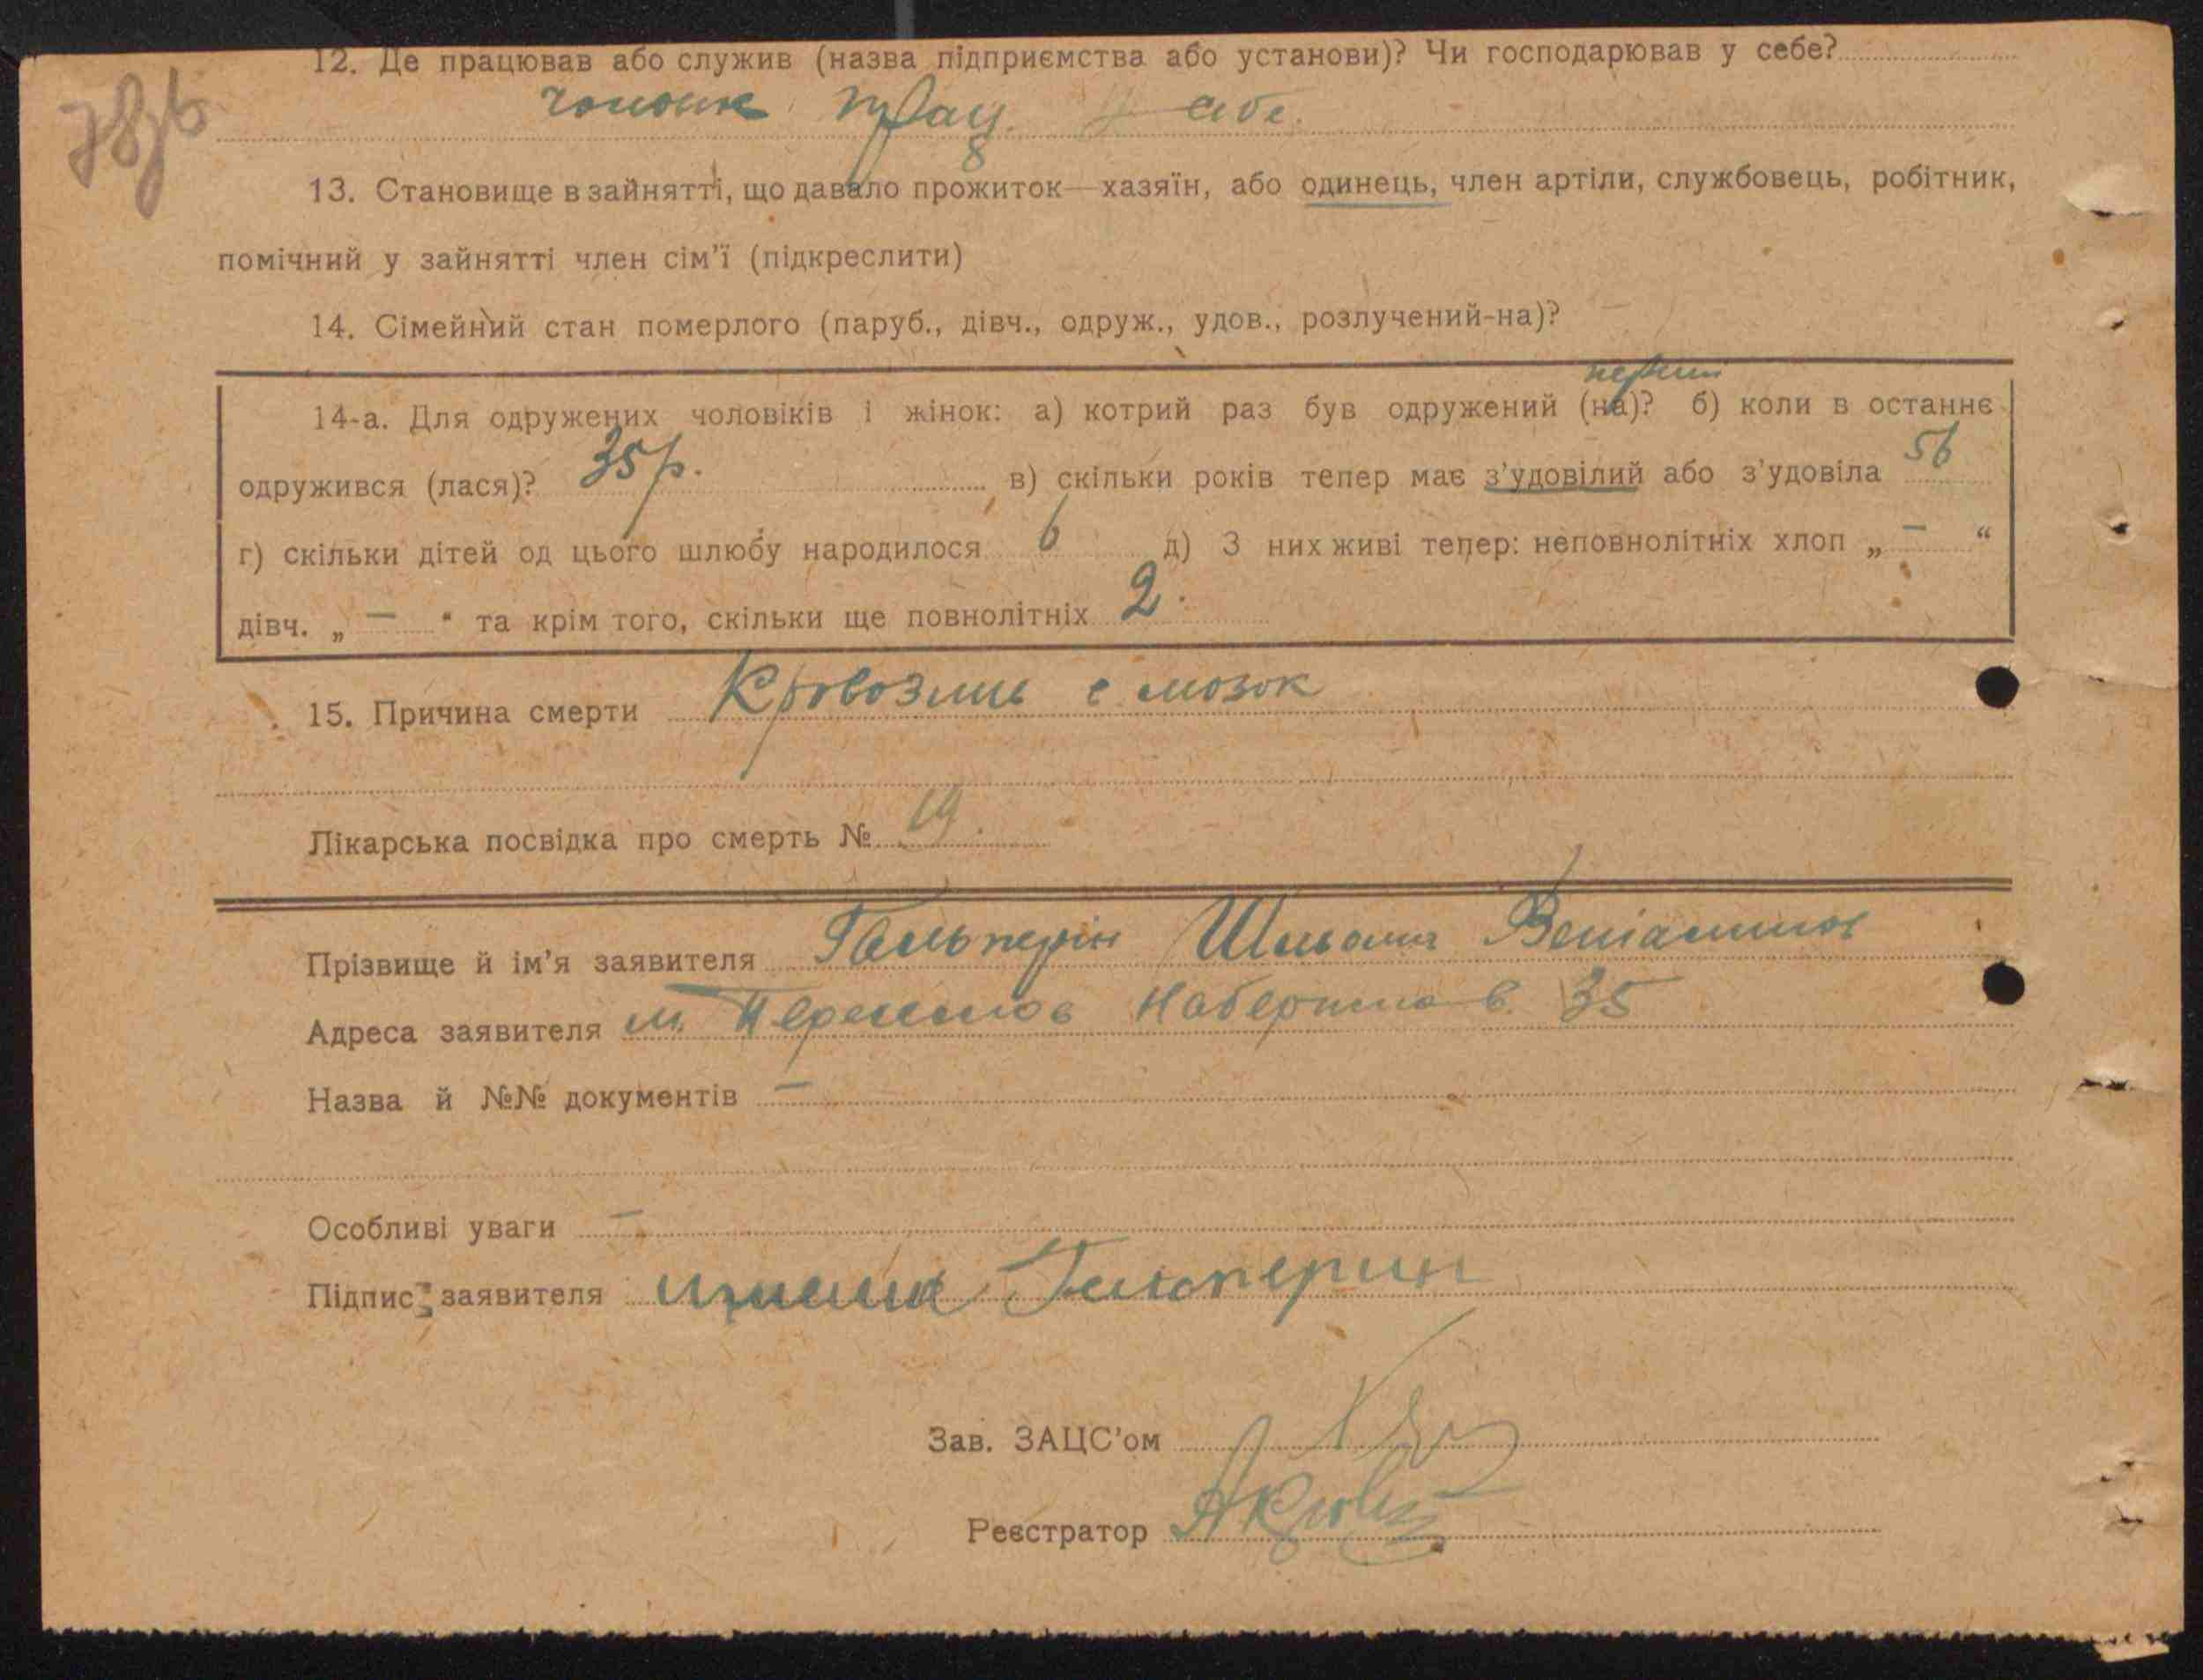 12. Де працював або служив (назва підприємства або установи)? Чи господарював у себе?
78/6
прац. у себе.
13. Становище в зайнятті, що давало прожиток—хазяїн, або одинець, член артіли, службовець, робітник,
помічний у зайнятті член сім'ї (підкреслити)
14. Сімейний стан померлого (паруб., дівч., одруж., удов., розлучений-на)?
перший
14-а. Для одружених чоловіків і жінок: а) котрий раз був одружений (на)? б) коли в останнє
одружився (лася)? 35 р. в) скільки років тепер має з'удовілий або з'удовіла 56
г) скільки дітей од цього шлюбу народилося 6 д) З них живі тепер: неповнолітніх хлоп „ — “
дівч. „ — “ та крім того, скільки ще повнолітніх 2.
15. Причина смерти Кровозлив в мозок
Лікарська посвідка про смерть № 19.
Прізвище й ім'я заявителя Гальперін Шльома Веніамінов
Адреса заявителя м. Набережна 35
Назва й №№ документів —
Особливі уваги —
Підпис заявителя Гальперин
Зав. ЗАЦС'ом
Реєстратор